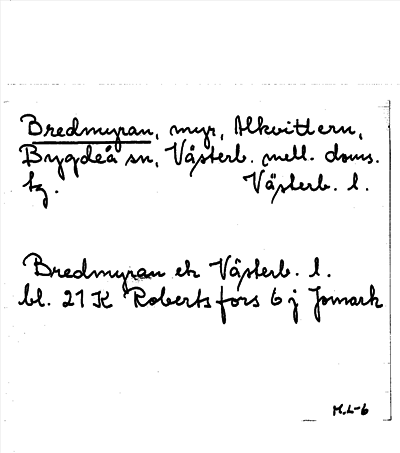 Bredmyran, myr, Alkvittern,
Bygdeå sn, Västerb. mell. doms.
tg. Västerb. l.
Bredmyran ek Västerb. l.
bl. 21 K Robertsfors 6 j Jomark
M.L-6